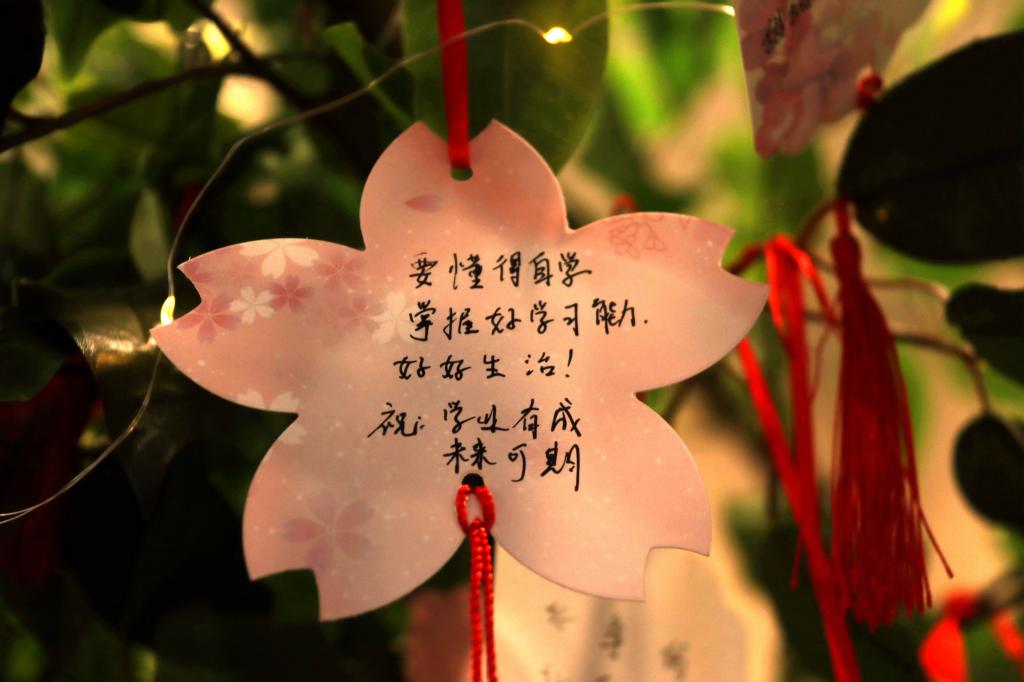 要懂得自学
掌握好学习能力.
好好生治！
祝：学业有成
未来可期